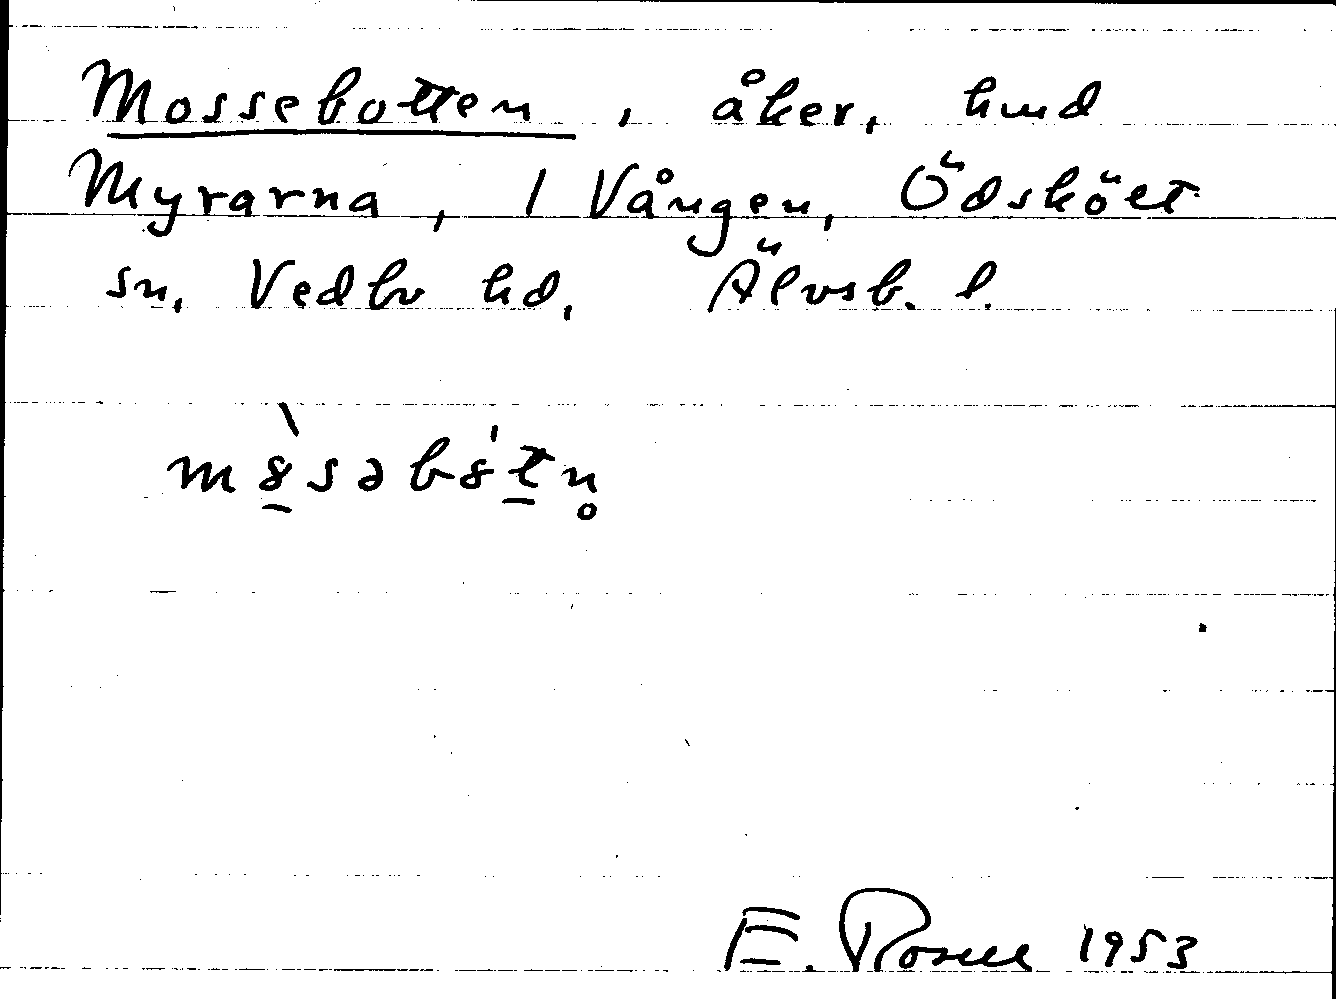 Mossebotten, åker, hmd
Myrarna, 1 Vången, Ödskölt
sn, Vedbo hd, Älvsb. l.
mò̠səbótn̥
E. Rosell 1953